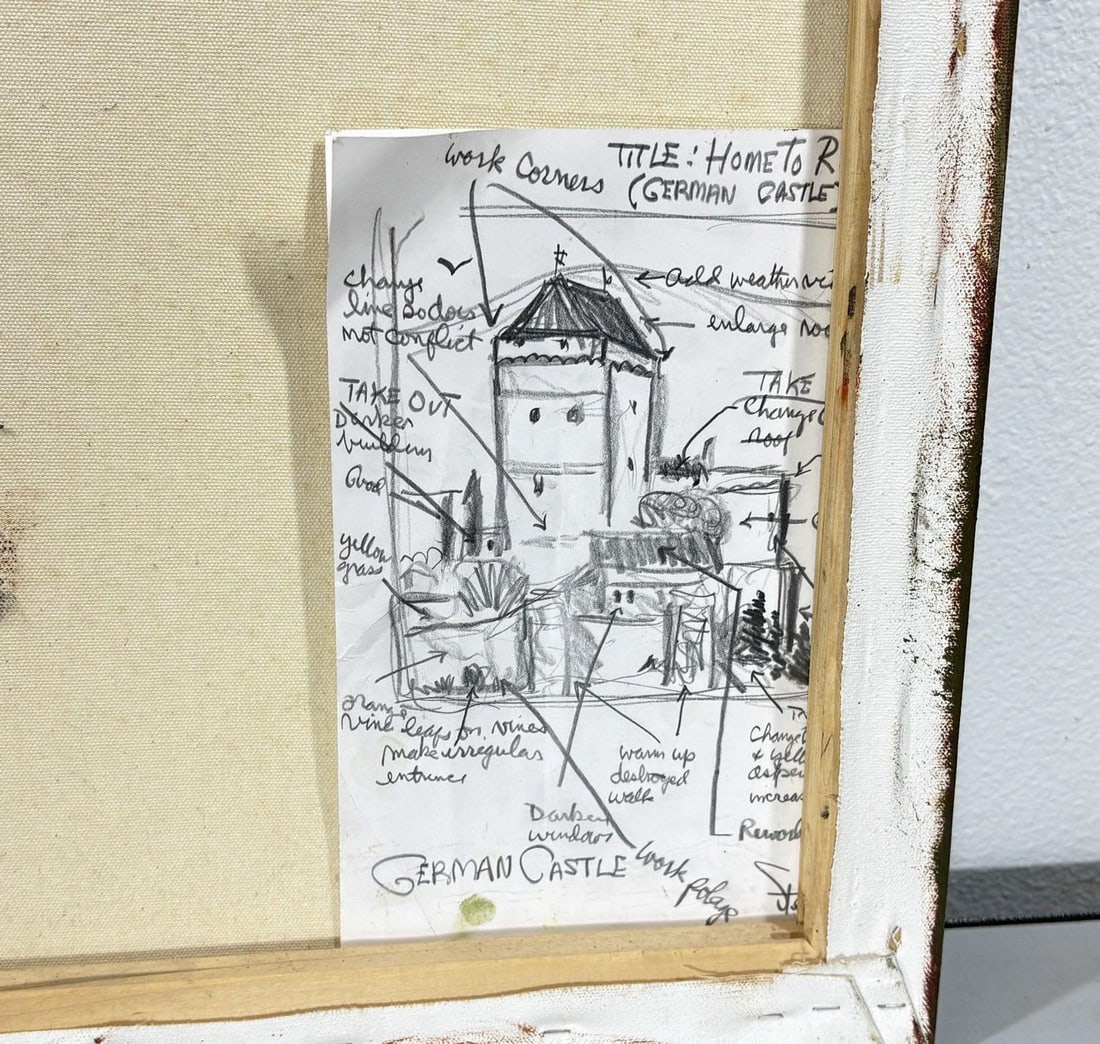 Work Corners
TITLE: HOME TO R
(GERMAN CASTLE
Change
line so does
not conflict
add weather
enlarge
TAKE OUT
Darker
building
TAKE
Change
roof
Good
yellow
grass
orange
vine leafs on vines
make irregular
entrance
warm up
destroyed
walk
Change
& yell
increas
Darken
windows
Rework
GERMAN CASTLE
Work